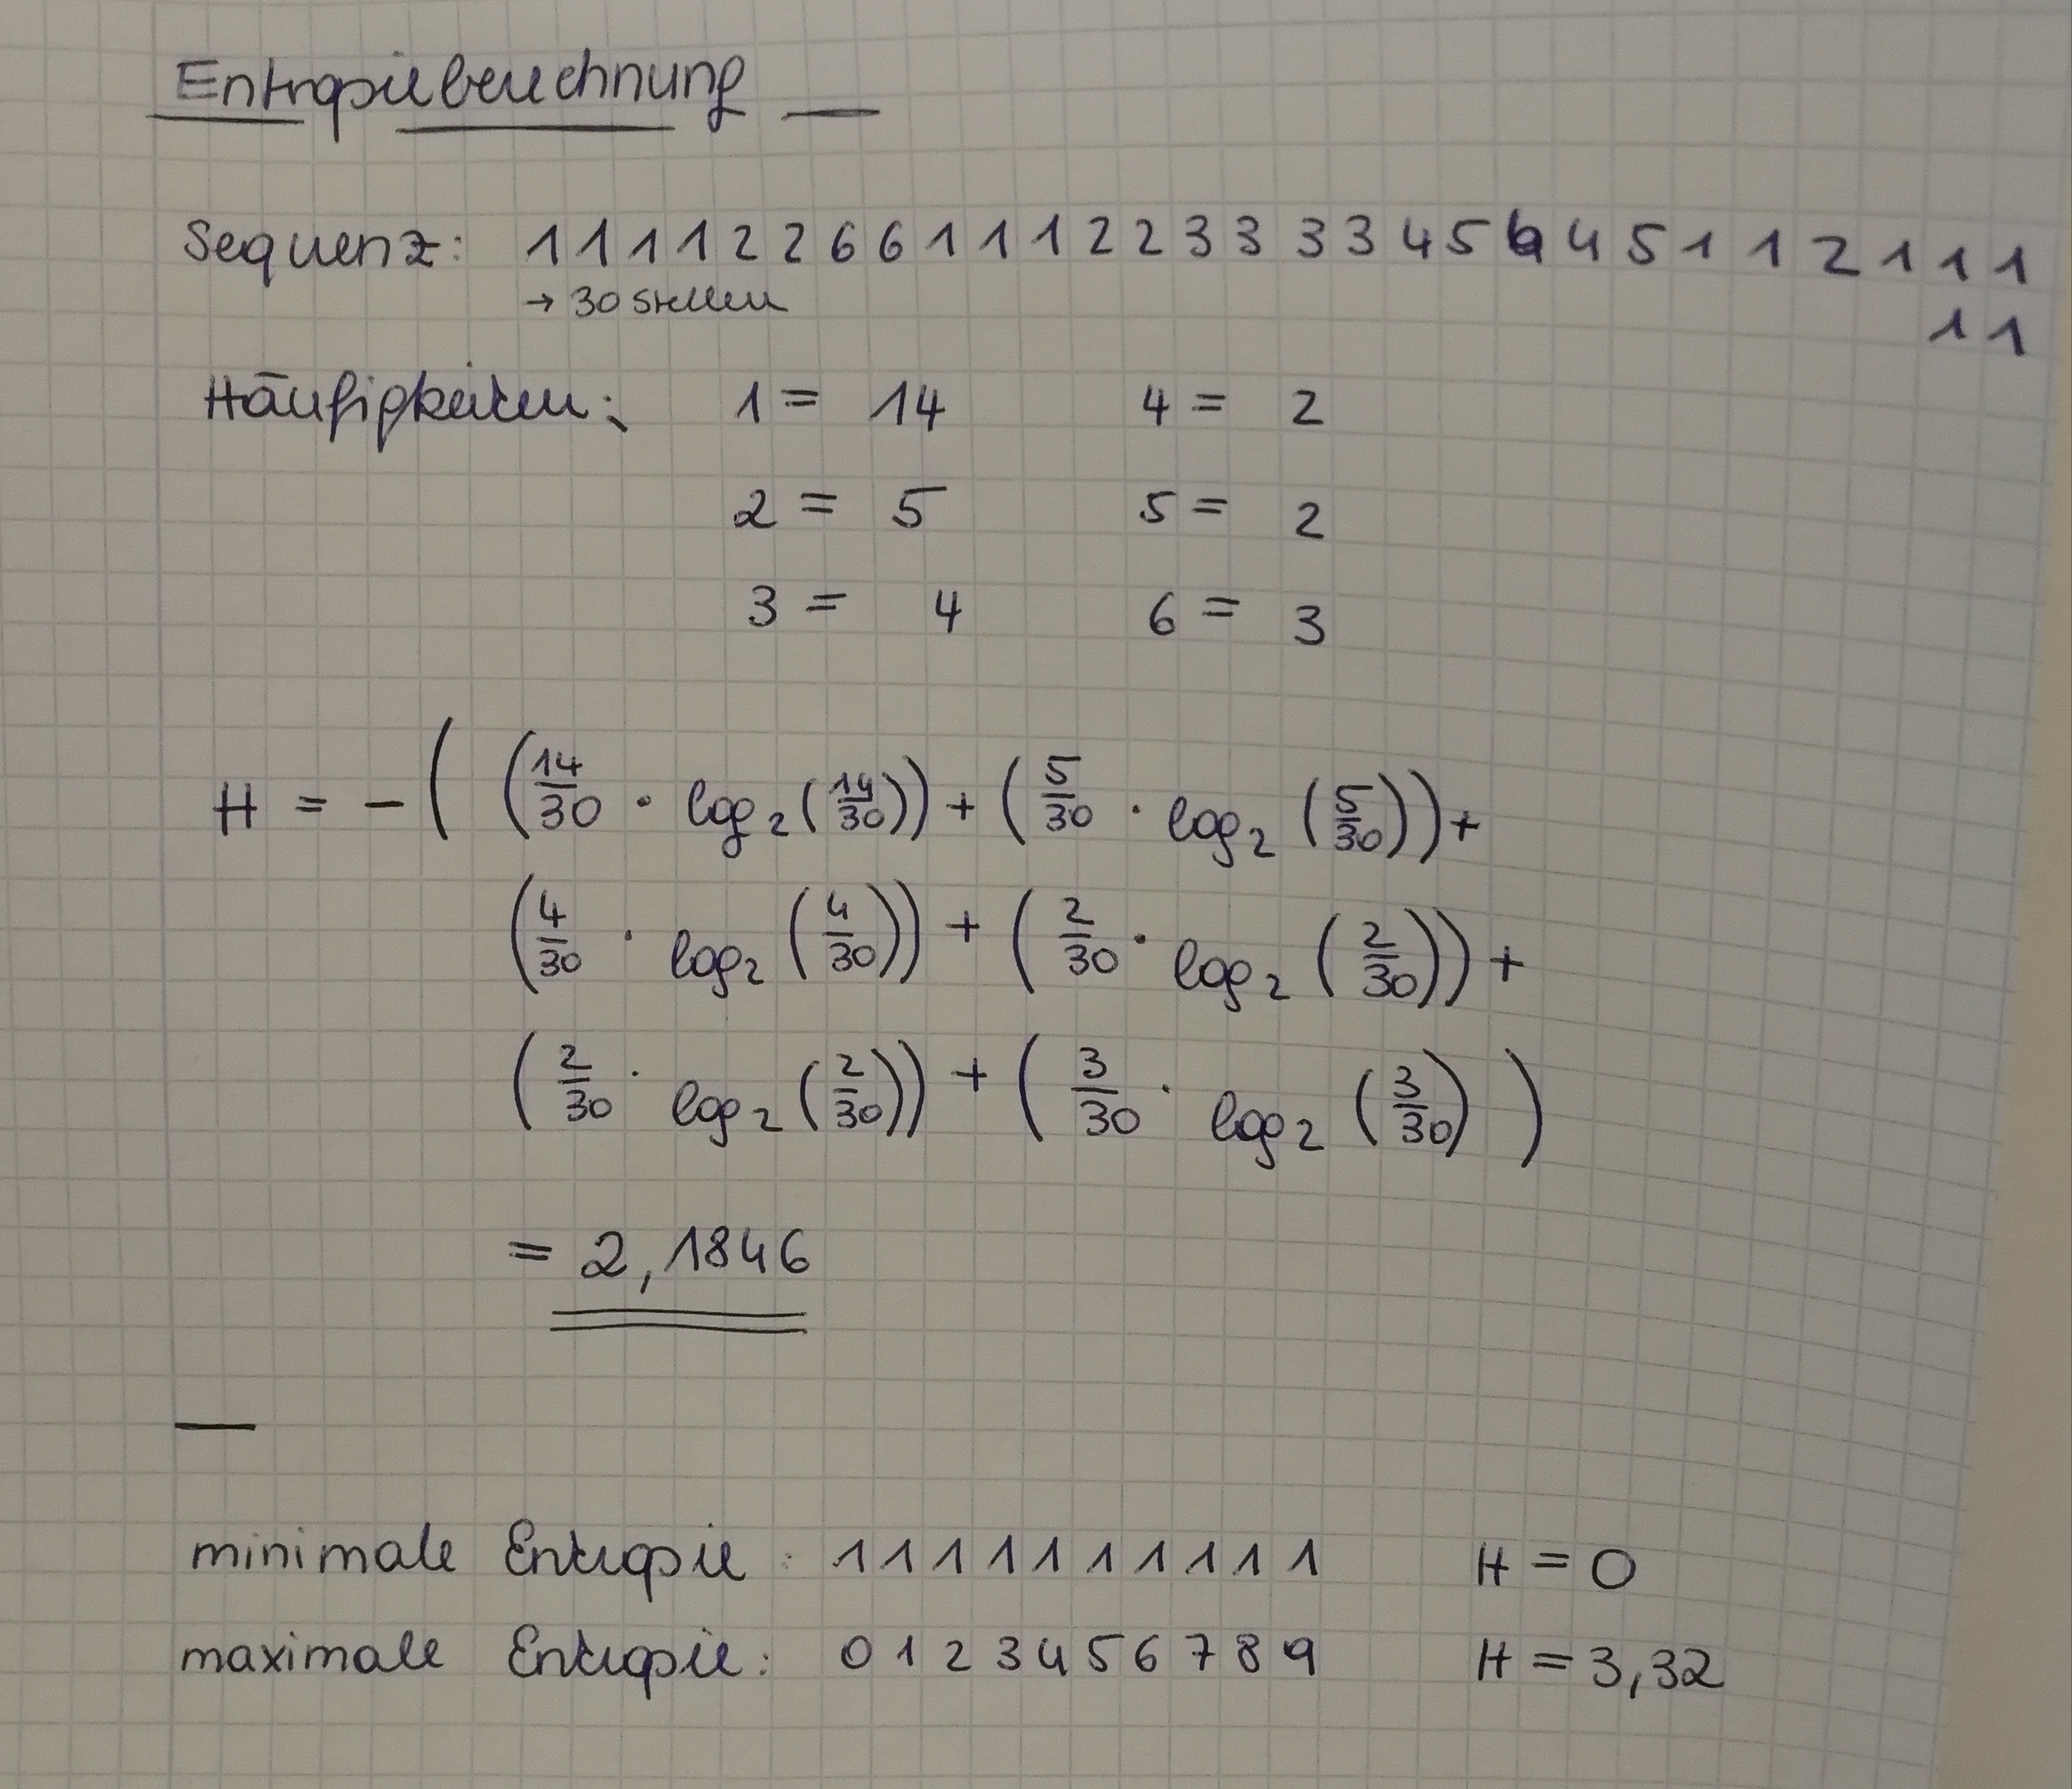 Entropieberechnung
Sequenz: 1 1 1 1 2 2 6 6 1 1 1 2 2 3 3 3 3 4 5 6 4 5 1 1 2 1 1 1
→ 30 Stellen
1 1
Häufigkeiten: 1 = 14 4 = 2
2 = 5 5 = 2
3 = 4 6 = 3
H = - ( (14/30 · log₂(14/30)) + (5/30 · log₂(5/30)) +
(4/30 · log₂(4/30)) + (2/30 · log₂(2/30)) +
(2/30 · log₂(2/30)) + (3/30 · log₂(3/30) )
= 2,1846
minimale Entropie: 1 1 1 1 1 1 1 1 1 1 H = 0
maximale Entropie: 0 1 2 3 4 5 6 7 8 9 H = 3,32